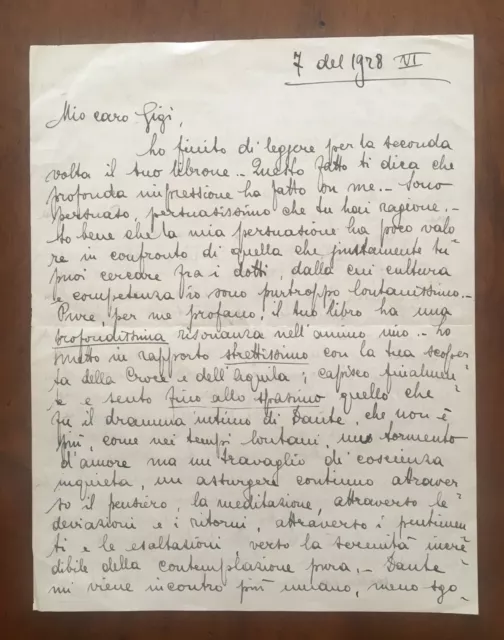 7 del 1928 VI
Mio caro Gigi,
ho finito di leggere per la seconda
volta il tuo librone.. Questo fatto ti dica che
profonda impressione ha fatto on me.. Sono
persuaso, persuasissimo che tu hai ragione.-
So bene che la mia persuasione ha poco valo
re in confronto di quella che giustamente tu
puoi cercare fra i dotti, dalla cui cultura
e competenza io sono purtroppo lontanissimo..
Pure, per me profano, il tuo libro ha una
profondissima risonanza nell'animo mio.. ho
messo in rapporto strettissimo con la tua scoper
ta della Croce e dell'Aquila; capisco finalmen
te e sento fino allo spasimo quello che
fu il dramma intimo di Dante, che non è
più, come nei tempi lontani, uno tormento
d'amore ma un travaglio di coscienza
inquieta, un assurgere continuo attraver
so il pensiero, la meditazione, attraverso le
deviazioni e i ritorni, attraverso i pentimen
ti e le esaltazioni verso la serenità incre
dibile della contemplazione pura.. Dante
mi viene incontro più umano, meno sgo